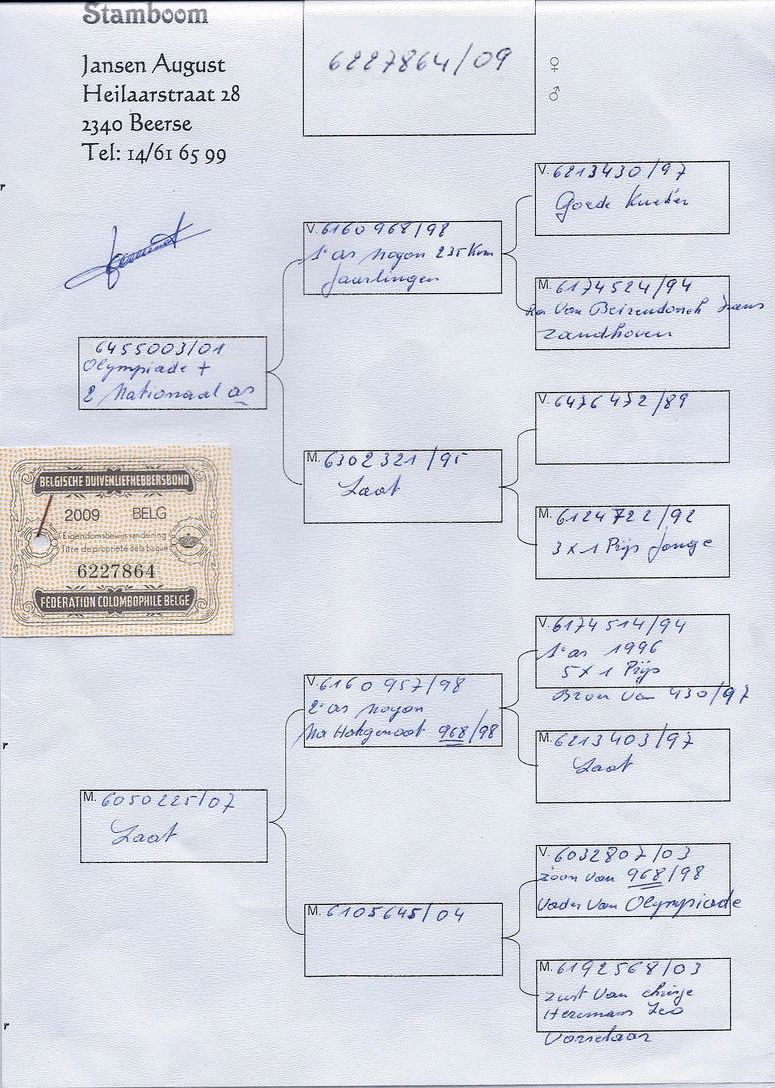 Stamboom
Jansen August
Heilaarstraat 28
2340 Beerse
Tel: 14/61 65 99
6227864/09
♀
♂
6455003/01
Olympiade +
2 Nationaal as
V. 6160968/98
1e as Noyon 235 Km
Jaarlingen
V. 6213430/97
Goede Kweker
M. 6174524/94
Van Beirendonck Frans
Zandhoven
M. 6302321/95
Laat
V. 6476472/89
M. 6124722/92
3 x 1 Prijs Jonge
BELGISCHE DUIVENLIEFHEBBERSBOND
2009 BELG
Eigendomsbewijs van de ring
Titre de propriété de la bague
6227864
FEDERATION COLOMBOPHILE BELGE
M. 6050225/07
Laat
V. 6160957/98
2e as Noyon
Na Hokgenoot 968/98
V. 6174514/94
1e as 1996
5 x 1 Prijs
Broer van 430/97
M. 6213403/97
Laat
M. 6105645/04
V. 6032807/03
zoon van 968/98
Vader van Olympiade
M. 6192568/03
zust van
Heremans Leo
Vorselaar
r
r
r